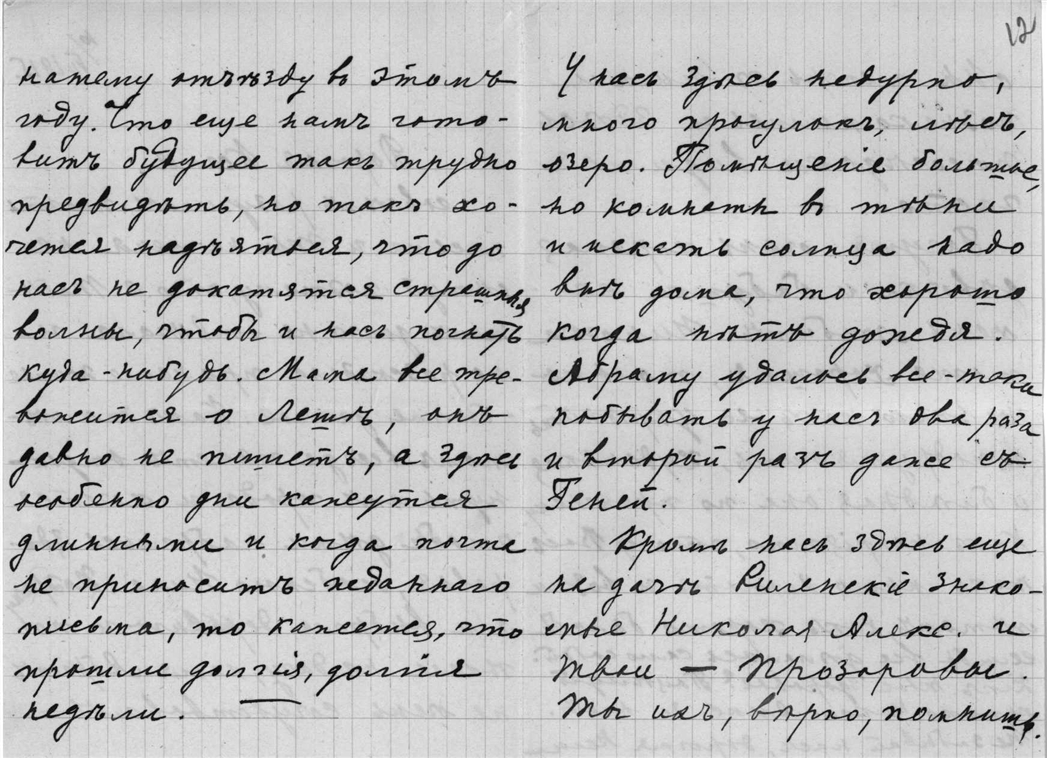 нашему отъѣзду въ этомъ
году. Что еще намъ гото-
витъ будущее такъ трудно
предвидѣть, но такъ хо-
чется надѣяться, что до
насъ не докатятся страшныя
волны, чтобы и насъ погнать
куда-нибудь. Мама все тре-
вожится о Лешѣ, онъ
давно не пишетъ, а здѣсь
особенно дни кажутся
длинными и когда почта
не приноситъ жданнаго
письма, то кажется, что
прошли долгія, долгія
недѣли. —
12
У насъ здѣсь недурно,
много прогулокъ, лѣсъ,
озеро. Помѣщеніе большое,
но комнаты въ тѣни
и искать солнца надо
внѣ дома, что хорошо
когда нѣтъ дождя.
Абраму удалось все-таки
побывать у насъ два раза
и второй разъ даже съ
Геней.
Кромѣ насъ здѣсь еще
на дачѣ Виленскіе знако-
мые Николая Алекс. и
твои — Прозоровы.
Ты ихъ, вѣрно, помнишь.